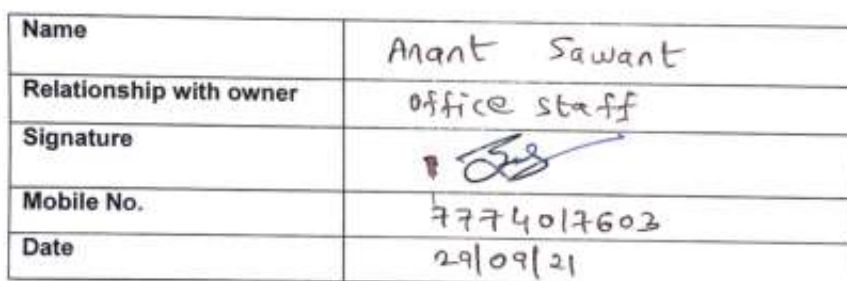 Name Anant Sawant
Relationship with owner office staff
Signature
Mobile No. 7774017603
Date 29/09/21